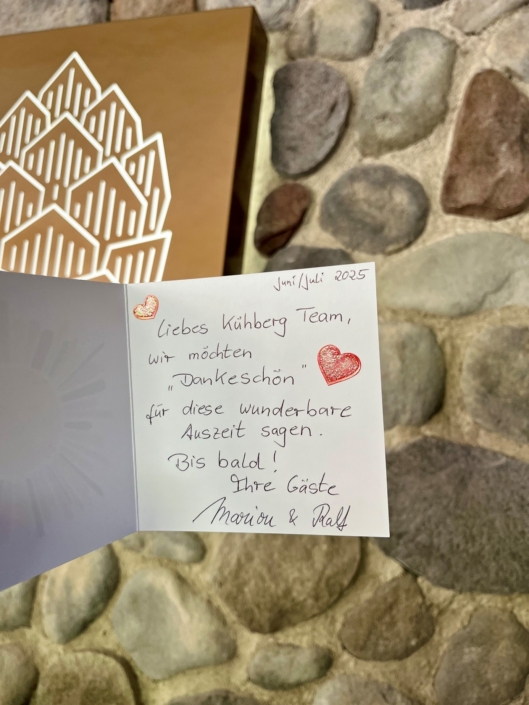 Juni/Juli 2025
Liebes Kühberg Team,
wir möchten
„Dankeschön"
für diese wunderbare
Auszeit sagen.
Bis bald!
Ihre Gäste
Marion & Ralf